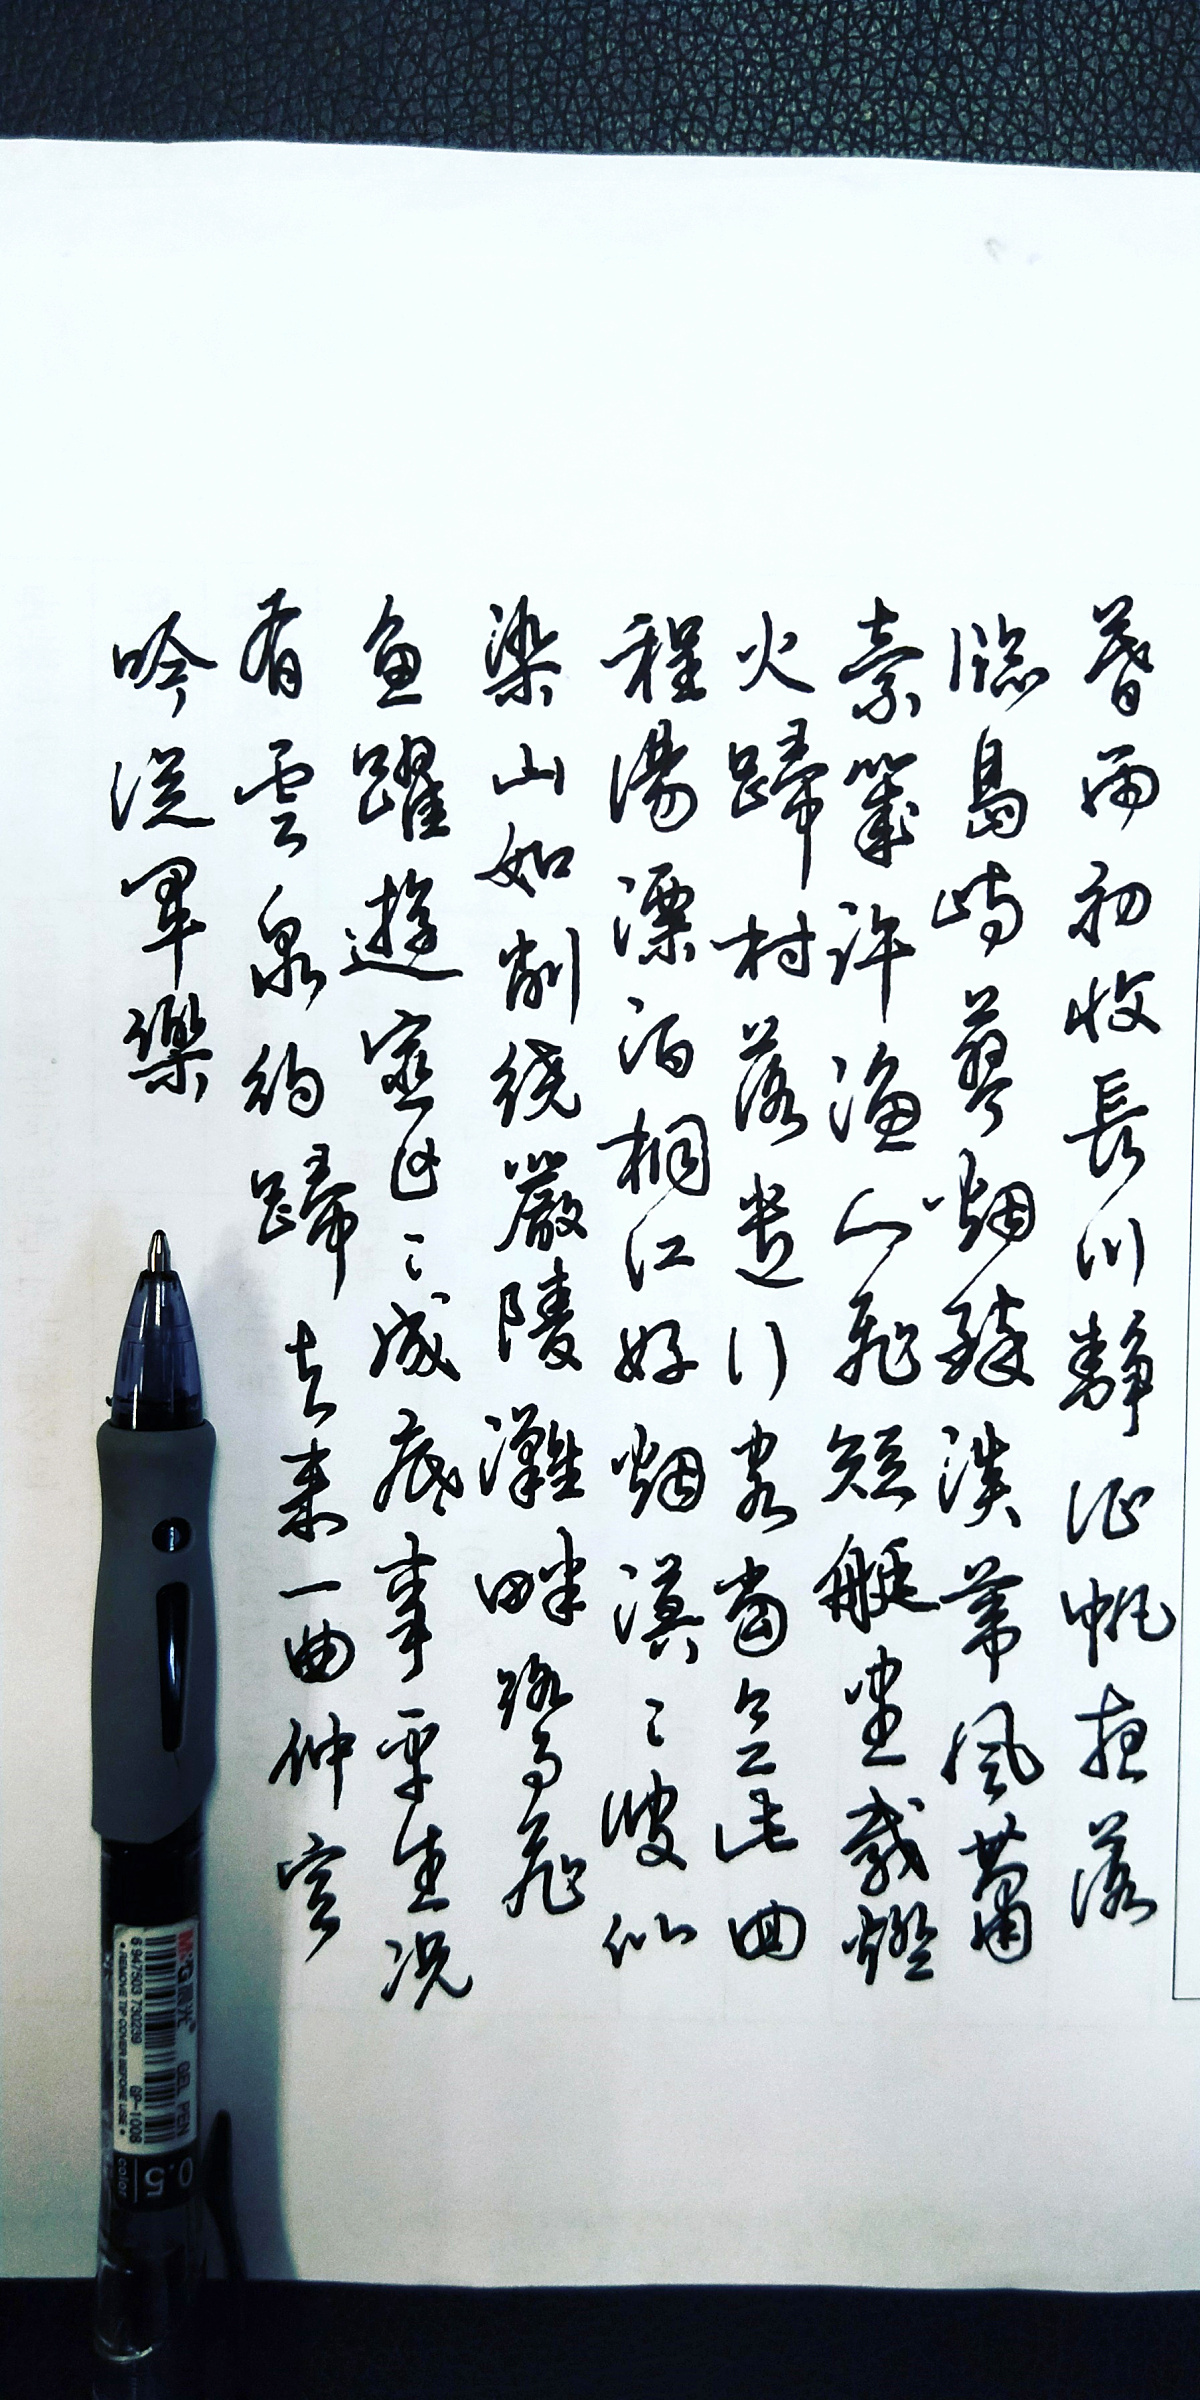 暮雨初收長川靜征帆夜落
臨島嶼蓼烟疎淡葦風蕭
索幾許漁人飛短艇盡載燈
火歸村落遣行客當念此回
程傷漂泊桐江好烟漠〻波似
染山如削绕嚴陵灘畔鷺飛
魚躍遊宦區〻成底事平生况
有雲泉約歸去來一曲仲宣
吟從軍樂
M&G晨光® GEL PEN
6 947503 730239 GP-1008
• REMOVE TIP COVER BEFORE USE •
0.5
color